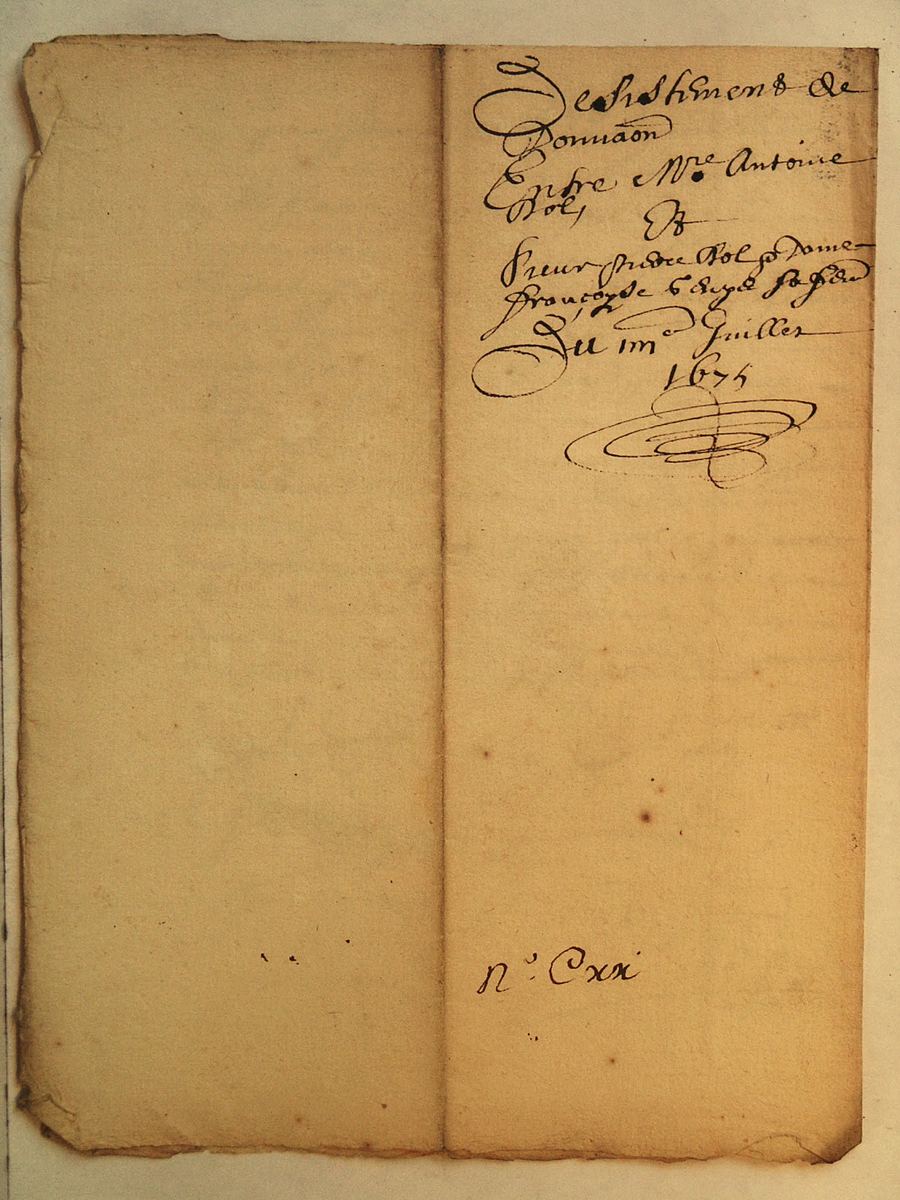 Desistement de
Donnaon
Entre Mre Antoine
Rol,
Et
Sieur pierre Rol & dame
françoyse sa
Du iiiie Juillet
1675
no. Cxxi